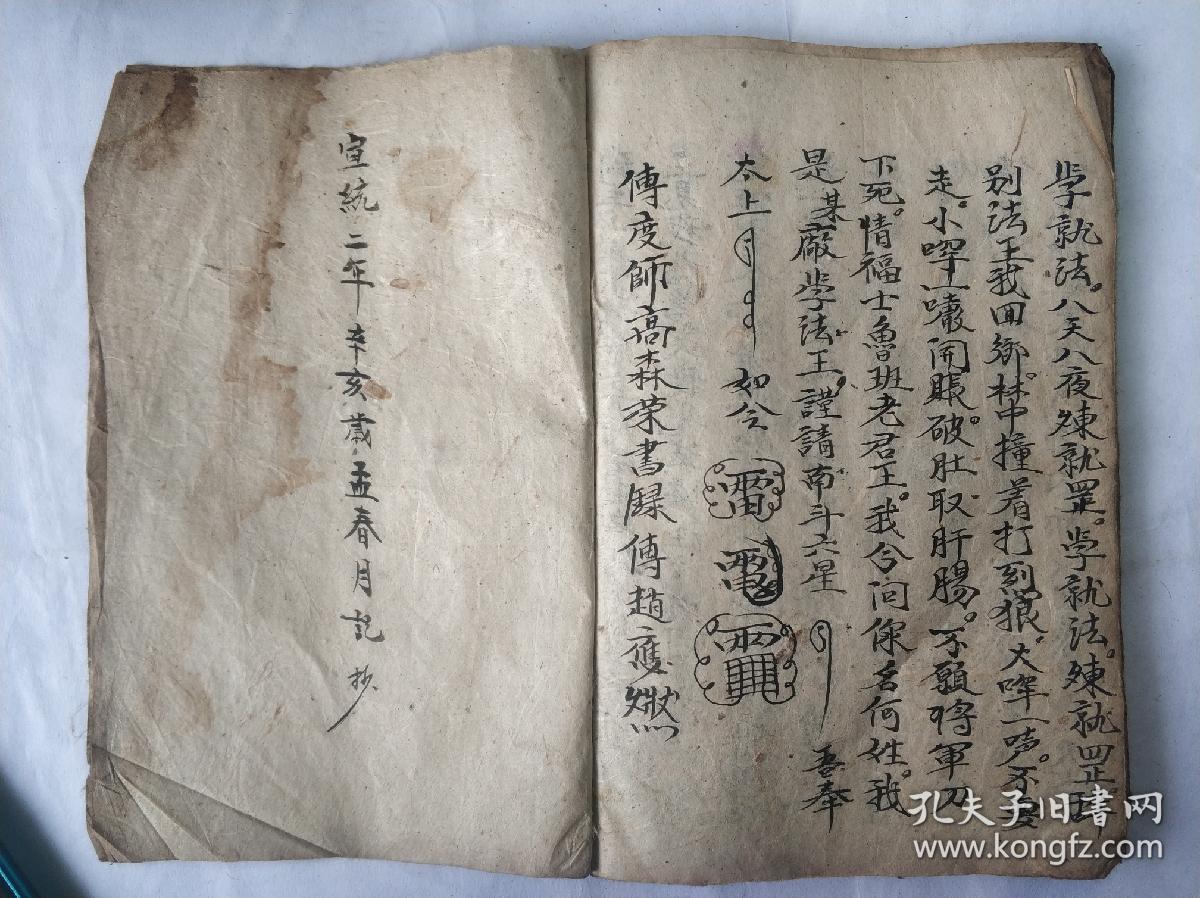 学就法。八天八夜煉就罡。学就法。煉就四正
别法王我回鄉。林中撞着打豺狼。大喹一声。不要
走。小喹一嚎開賬。破肚取肝腸。不願將軍刀
下死。情福士魯班老君王。我今问你名何姓。我
是某廠学法王。謹請南斗六星 吾奉
太上 如令
傳度師高森荣書錄傳趙應
宣統二年辛亥歲孟春月記 抄
孔夫子旧書网
www.kongfz.com